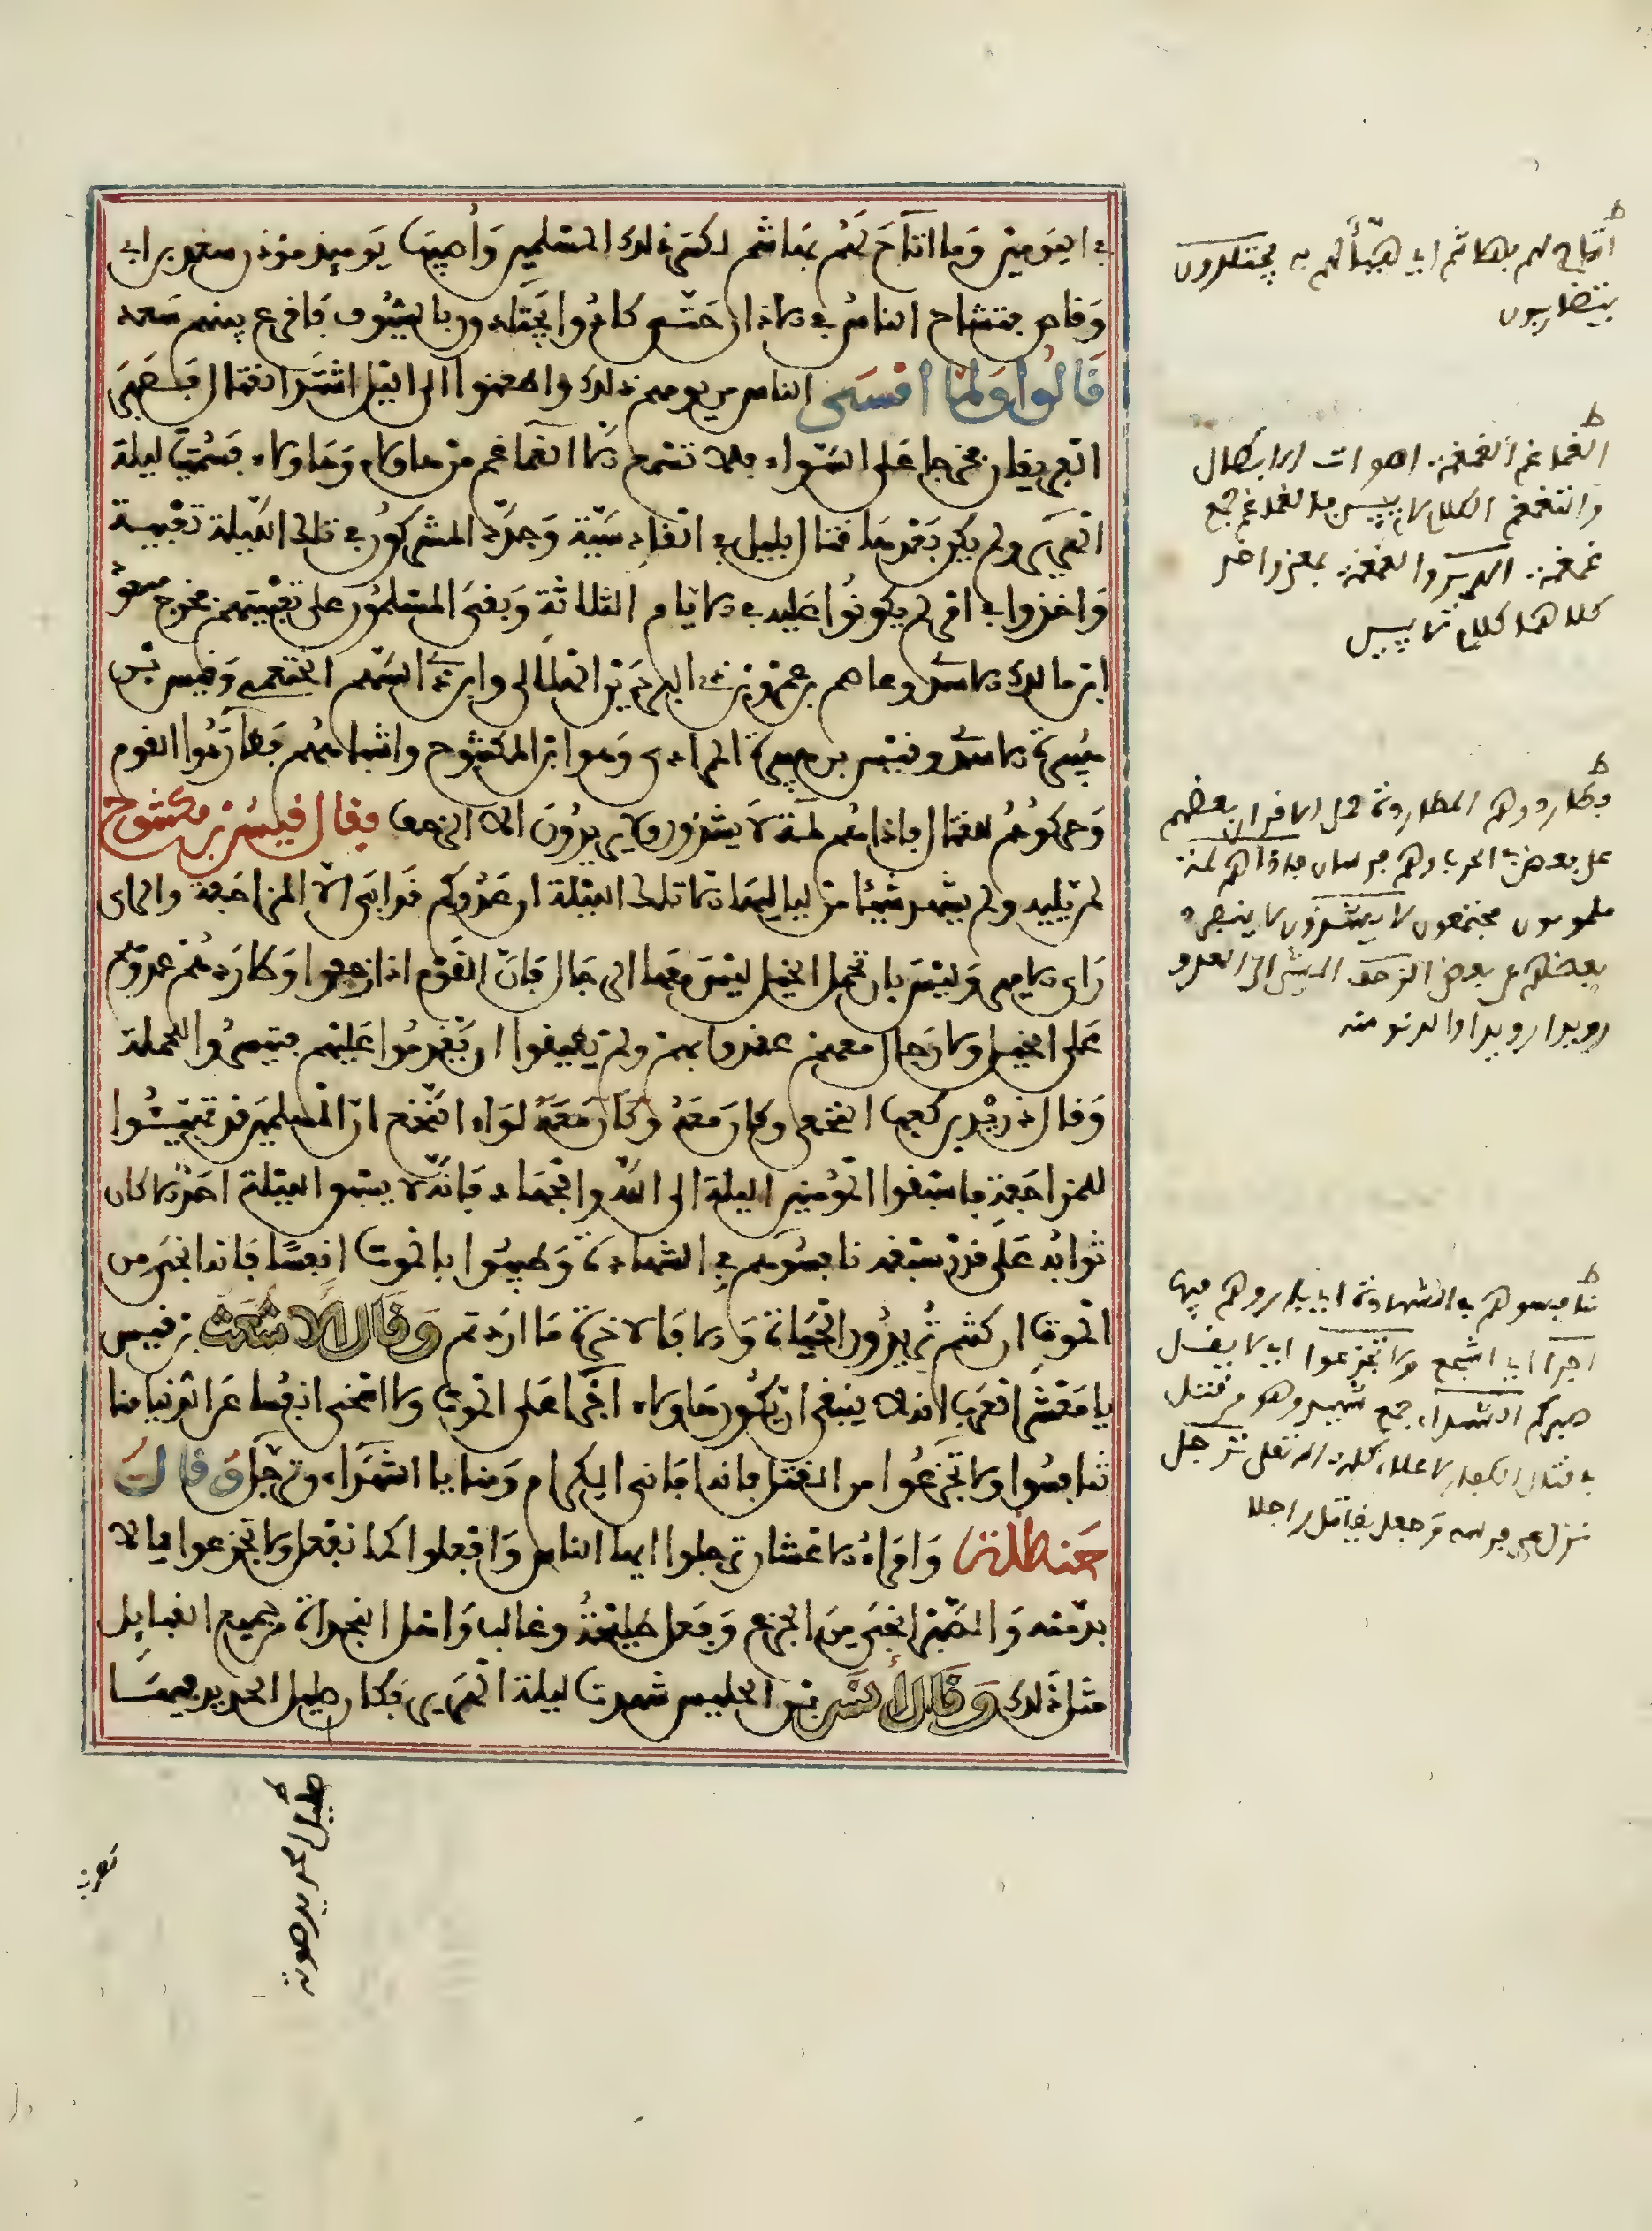 في اليومين وما اتاح لهم بهاشم لكسر ذلك المسلمين وأصيب يومئذ مؤذن سعد بن ابي
وقاص فتشاح الناس في الاذان حتى كادوا يجتلدون بالسيوف فاقرع بينهم سعد
قالوا ولما امسى الناس من يومهم ذلك واطعنوا الى الليل اشتد القتال فصبر
الفريقان فخرجا على السواء فلا تسمع الا الغماغم من هاولاء وهاولاء فسميت ليلة
الهرير ولم يكن بعدها قتال بليل في القادسية وجدد المشركون في تلك الليلة تعبية
واخذوا في امر لم يكونوا عليه في الايام الثلاثة وبقي المسلمون على تعبيتهم فخرج مسعود
ابن مالك الاسدي وعاصم بن عمرو بن ذي البردين الهلالي وابن ذي السهمين الخثعمي وقيس بن
هبيرة الاسدي وقيس بن هبيرة المرادي وهو ابن المكشوح واشباههم فطاردوا القوم
وحركوهم للقتال فاذا هم لمة لا يشذون ولا يريدون الا الزحف فقال قيس بن مكشوح
لمن يليه ولم يشهد شيئا من لياليها الا تلك الليلة ان عدوكم قد ابى الا المزاحفة والراي
راي الامير وليس بان تحمل الخيل ليس معها الرجال فان القوم اذا زحفوا وطاردهم عدوهم
على الخيل ولا رجال معهم عقروا بهم ولم يطيقوا ان يقدموا عليهم فتيسروا للحملة
وقال دريد بن كعب النخعي وكان معه وكان معه لواء النخع ان المسلمين قد تهيئوا
للمزاحفة فاسبقوا المومنين الليلة الى الله والجهاد فانه لا يسبق الليلة احد الا كان
ثوابه على قدر سبقه نافسوهم في الشهادة وطيبوا بالموت انفسا فانه انجى من
الموت ان كنتم تريدون الحياة والا فالاخرة ما اردتم وقال الاشعث بن قيس
يا معشر العرب انه لا ينبغي ان يكون هاولاء اجرا على الموت ولا اسخى انفسا عن الدنيا منا
تنافسوا ولا تجزعوا من القتل فانها اماني الكرام ومنايا الشهداء وترجل وقالت
حنظلة وامراء الاعشار ترجلوا ايها الناس وافعلوا كما نفعل ولا تجزعوا مما لا
بد منه والصبر انجى من الجزع وفعل طليحة وغالب واهل النجدات من جميع القبايل
مثل ذلك وقال انس بن الحليس شهدت ليلة الهرير فكان صليل الحديد فيها
اتاح لهم بهاشم اي هيأ لهم به يجتلدون
يتضاربون
الغماغم الغمغمة اصوات الابطال
والتغمغم الكلام لا يبين فالغماغم جمع
غمغمة الهرير والغمغمة بمعنى واحد
كلاهما كلام لا يبين
فطاردوهم المطاردة حمل الاقران بعضهم
على بعض في الحرب وهم فرسان فاذا هم لمة
ملمومون مجتمعون لا يشذون لا ينفرد
بعضهم عن بعض الزحف المشي الى العدو
رويدا رويدا والدنو منه
نافسوهم في الشهادة اي بادروهم فيها
اجرا اي اشجع ولا تجزعوا اي لا يقل
صبركم الشهداء جمع شهيد وهو من قتل
في قتال الكفار لاعلاء كلمة الله تعلى ترجل
نزل عن فرسه وجعل يقاتل راجلا
صليل الحديد صوته